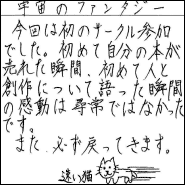 宇宙のファンタジー
今回は初のサークル参加
でした。初めて自分の本が
売れた瞬間、初めて人と
創作について語った瞬間
の感動は尋常ではなかった
です。
また必ず戻ってきます。
遠い猫